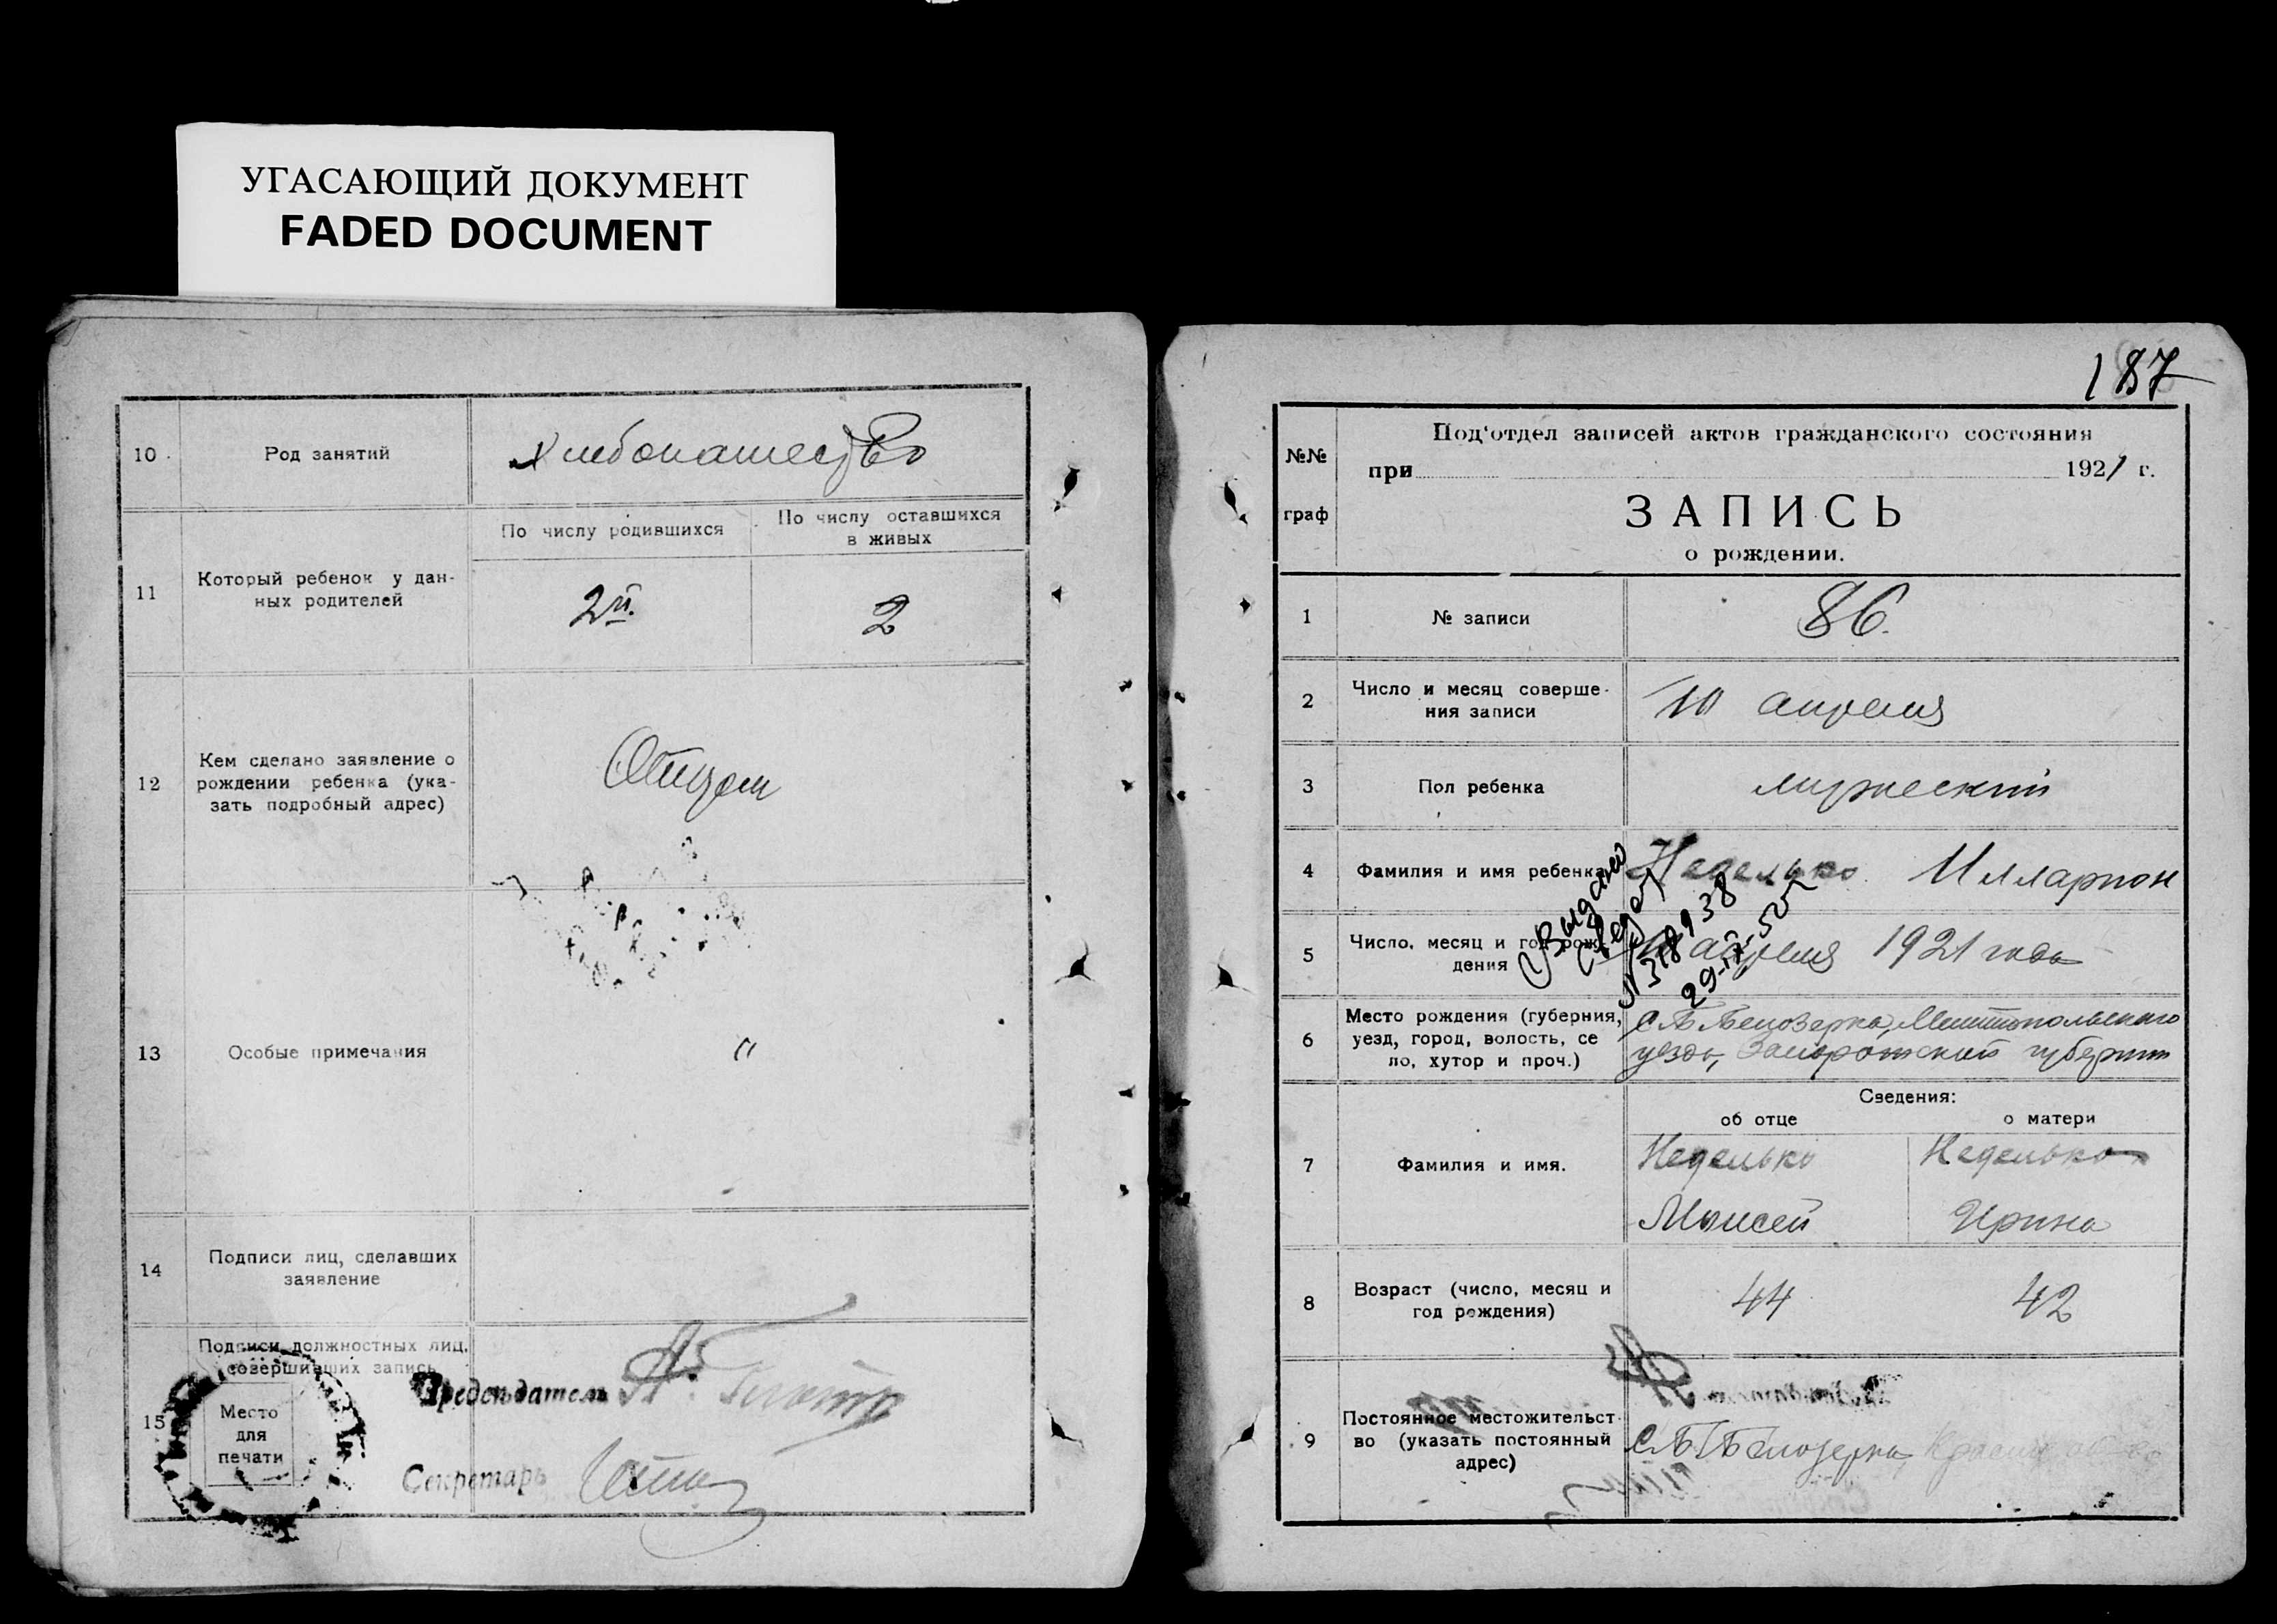 УГАСАЮЩИЙ ДОКУМЕНТ
FADED DOCUMENT
10
Род занятий
хлебопашество
11
Который ребенок у дан-
ных родителей
По числу родившихся
2й.
По числу оставшихся
в живых
2
12
Кем сделано заявление о
рождении ребенка (ука-
зать подробный адрес)
Отцом
13
Особые примечания
"
14
Подписи лиц, сделавших
заявление
15
Подписи должностных лиц,
совершивших запись
Место
для
печати
Председатель
Секретарь
187
№№
граф
Под'отдел записей актов гражданского состояния
при 1921 г.
ЗАПИСЬ
о рождении.
1
№ записи
86.
2
Число и месяц соверше-
ния записи
10 апреля
3
Пол ребенка
мужеский
4
Фамилия и имя ребенка
Неделько Илларион
5
Число, месяц и год рож-
дения
апреля 1921 года
Выдано
29-IV-50
6
Место рождения (губерния,
уезд, город, волость, се
ло, хутор и проч.)
С Б Белозерка, Мелитопольского
уезда, Запорожской губернии
Сведения:
об отце
о матери
7
Фамилия и имя.
Неделько
Моисей
Неделько
Ирина
8
Возраст (число, месяц и
год рождения)
44
42
9
Постоянное местожительст-
во (указать постоянный
адрес)
С Б Белозерка